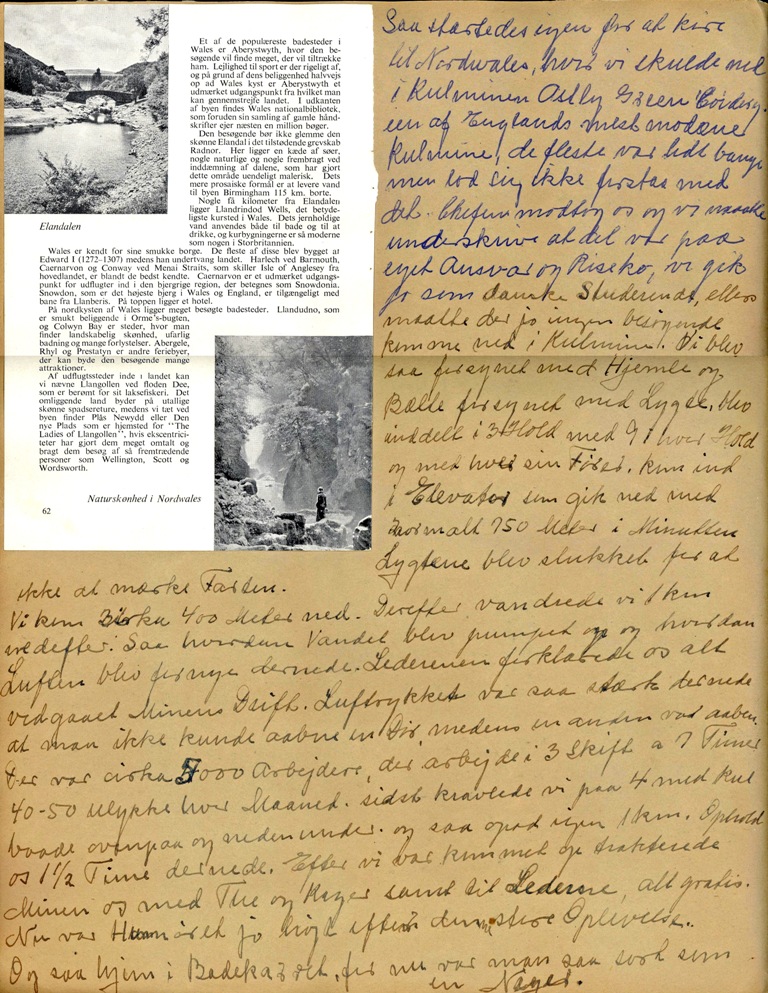 Et af de populæreste badesteder i
Wales er Aberystwyth, hvor den be-
søgende vil finde meget, der vil tiltrække
ham. Lejlighed til sport er der rigeligt af,
og på grund af dens beliggenhed halvvejs
op ad Wales kyst er Aberystwyth et
udmærket udgangspunkt fra hvilket man
kan gennemstrejfe landet. I udkanten
af byen findes Wales nationalbibliotek,
som foruden sin samling af gamle hånd-
skrifter ejer næsten en million bøger.
Den besøgende bør ikke glemme den
skønne Elandal i det tilstødende grevskab
Radnor. Her ligger en kæde af søer,
nogle naturlige og nogle frembragt ved
inddæmning af dalene, som har gjort
dette område uendeligt malerisk. Dets
mere prosaiske formål er at levere vand
til byen Birmingham 115 km. borte.
Nogle få kilometer fra Elandalen
ligger Llandrindod Wells, det betyde-
ligste kursted i Wales. Dets jernholdige
vand anvendes både til bade og til at
drikke, og kurbygningerne er så moderne
som nogen i Storbritannien.
Elandalen
Wales er kendt for sine smukke borge. De fleste af disse blev bygget af
Edward I (1272–1307) medens han undertvang landet. Harlech ved Barmouth,
Caernarvon og Conway ved Menai Straits, som skiller Isle of Anglesey fra
hovedlandet, er blandt de bedst kendte. Caernarvon er et udmærket udgangs-
punkt for udflugter ind i den bjergrige region, der betegnes som Snowdonia.
Snowdon, som er det højeste bjerg i Wales og England, er tilgængeligt med
bane fra Llanberis. På toppen ligger et hotel.
På nordkysten af Wales ligger meget besøgte badesteder. Llandudno, som
er smukt beliggende i Orme's-bugten,
og Colwyn Bay er steder, hvor man
finder landskabelig skønhed, ufarlig
badning og mange forlystelser. Abergele,
Rhyl og Prestatyn er andre feriebyer,
der kan byde den besøgende mange
attraktioner.
Af udflugtssteder inde i landet kan
vi nævne Llangollen ved floden Dee,
som er berømt for sit laksefiskeri. Det
omliggende land byder på utallige
skønne spadsereture, medens vi tæt ved
byen finder Plås Newydd eller Den
nye Plads som er hjemsted for "The
Ladies of Llangollen", hvis ekscentrici-
teter har gjort dem meget omtalt og
bragt dem besøg af så fremtrædende
personer som Wellington, Scott og
Wordsworth.
Naturskønhed i Nordwales
62
Saa startedes igen for at køre
til Nordwales, hvor vi skulde ned
i Kulminen Astly Green
een af Englands mest modærne
Kulmine, de fleste var lidt bange
men lod sig ikke forstaa med
det. Chefen modtog os og vi maatte
underskrive at det var paa
eget Ansvar og Riseko, vi gik
jo som danske Studerende, ellers
maatte der jo ingen besøgende
komme ned i Kulminen. Vi blev
saa forsynet med Hjemle og
Bælte forsynet med Lygte, blev
inddelt i 3 Hold med 9 i hver Hold
og med hver sin Fører. kom ind
i Elevator som gik ned med
normalt 750 Meter i Minutten
Lygtene blev slukket for at
ikke at mærke Farten.
Vi kom Zirka 400 Meter ned. Derefter vandrede vi 1 km
nedefter. Saa hvordan Vandet blev pumpet op og hvordan
Luften blev fornyet dernede. Lederenen forklarede os alt
vedgaaet Minens Drift. Lufttrykket var saa stærk dernede
at man ikke kunde aabne en Dør medens en anden var aaben.
Der var cirka 5000 Arbejdere, der arbejde i 3 Skift a 7 Timer
40-50 Ulykke hver Maaned. sidst kravlede vi paa 4 med Kul
baade ovenpaa og nedenunder. og saa opad igen 1 km. Ophold
os 1½ Time dernede. Efter vi var kommet op trakterede
Minen os med The og Kager samt til Lederne, alt gratis.
Nu var Humøret jo højt efter denne store Oplevelse.
Og saa hjem i Badekarret, for nu var man saa sort som
en Neger.